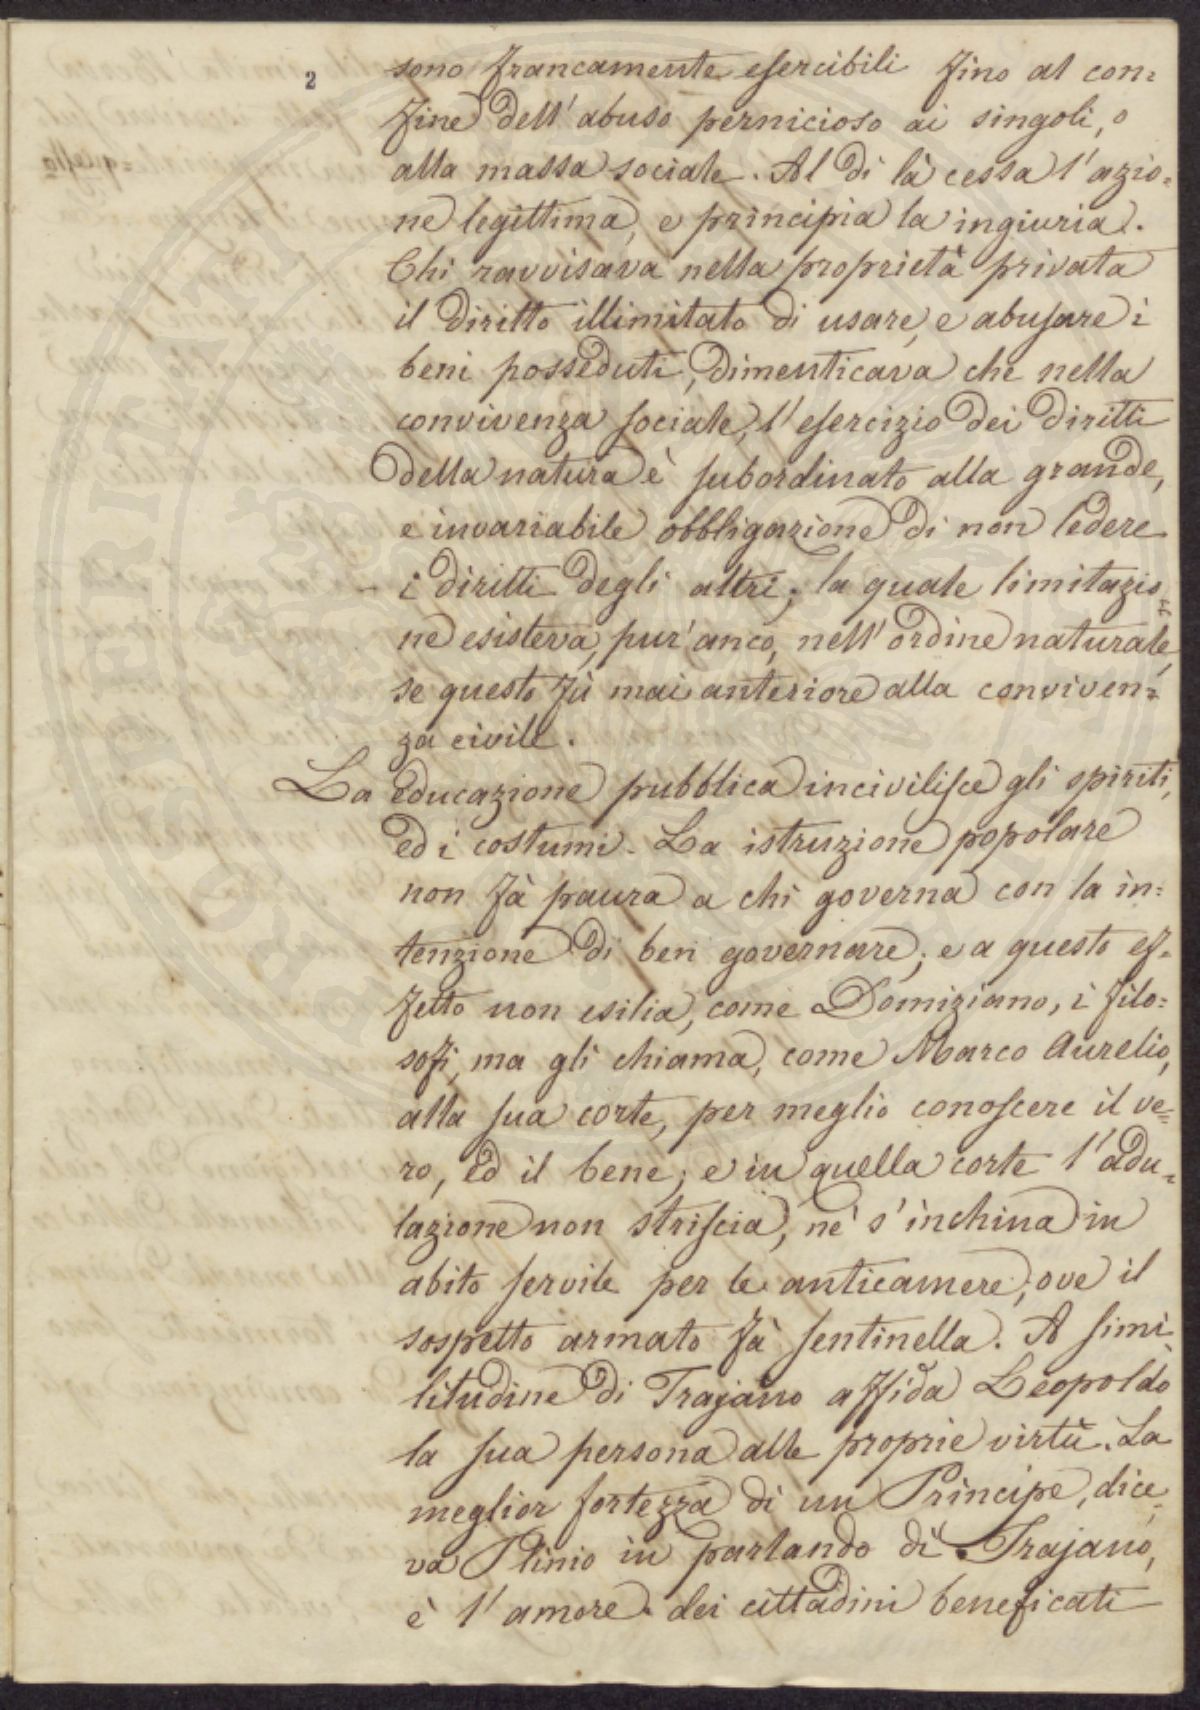 2
sono francamente esercibili fino al con=
fine dell' abuso pernicioso ai singoli, o
alla massa sociale. Al di là cessa l' azio=
ne legittima, e principia la ingiuria.
Chi ravvisava nella proprietà privata
il diritto illimitato di usare, e abusare i
beni posseduti, dimenticava che nella
convivenza sociale, l' esercizio dei diritti
della natura è subordinato alla grande,
e invariabile obbligazione di non ledere
i diritti degli altri; la quale limitazio=
ne esisteva, pur' anco, nell' ordine naturale,
se questo fù mai anteriore alla conviven=
za civile.
La educazione pubblica incivilisce gli spiriti,
ed i costumi. La istruzione popolare
non fà paura a chi governa con la in=
tenzione di ben governare; e a questo ef=
fetto non esilia, come Domiziano, i filo=
sofi, ma gli chiama, come Marco Aurelio,
alla sua corte, per meglio conoscere il ve=
ro, ed il bene; e in quella corte l' adu=
lazione non striscia, nè s' inchina in
abito servile per le anticamere, ove il
sospetto armato fà sentinella. A simi=
litudine di Trajano affida Leopoldo
la sua persona alle proprie virtù. La
meglior fortezza di un Principe, dice=
va Plinio in parlando di Trajano,
è l' amore dei cittadini beneficati
PROSPERITATI